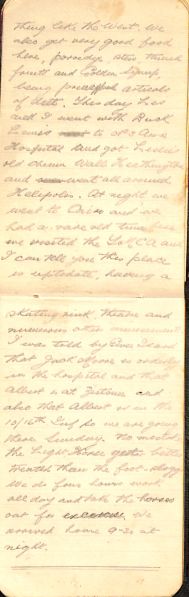 thing like the West. We
also get very good food
here, porridge, stew, bread
fruit and Golden Syrup,
being principal articles
of diet. This day Les
and I went with Dusk
Lewis to No 2 Aus
Hospital and got Leslie's
old chum Walls Heathington
and went all around
Heliopolis. At night we
went to Cairo and we
had a rare old time
we visited the Y.M.C.A and
I can tell you this place
is uptodate, having a
skating rink, theatre and
numerous other amusements
I was told by
that Jack is orderly
in the hospital and that
Albert is at Zeitoun and
also that Albert is in the
10/16th Inf so we are going
there Sunday. No mistake
the Light Horse gets better
treated than the foot
We do four hours work
all day and take the horses
out for exercise. We
arrived home 9-30 at
night.